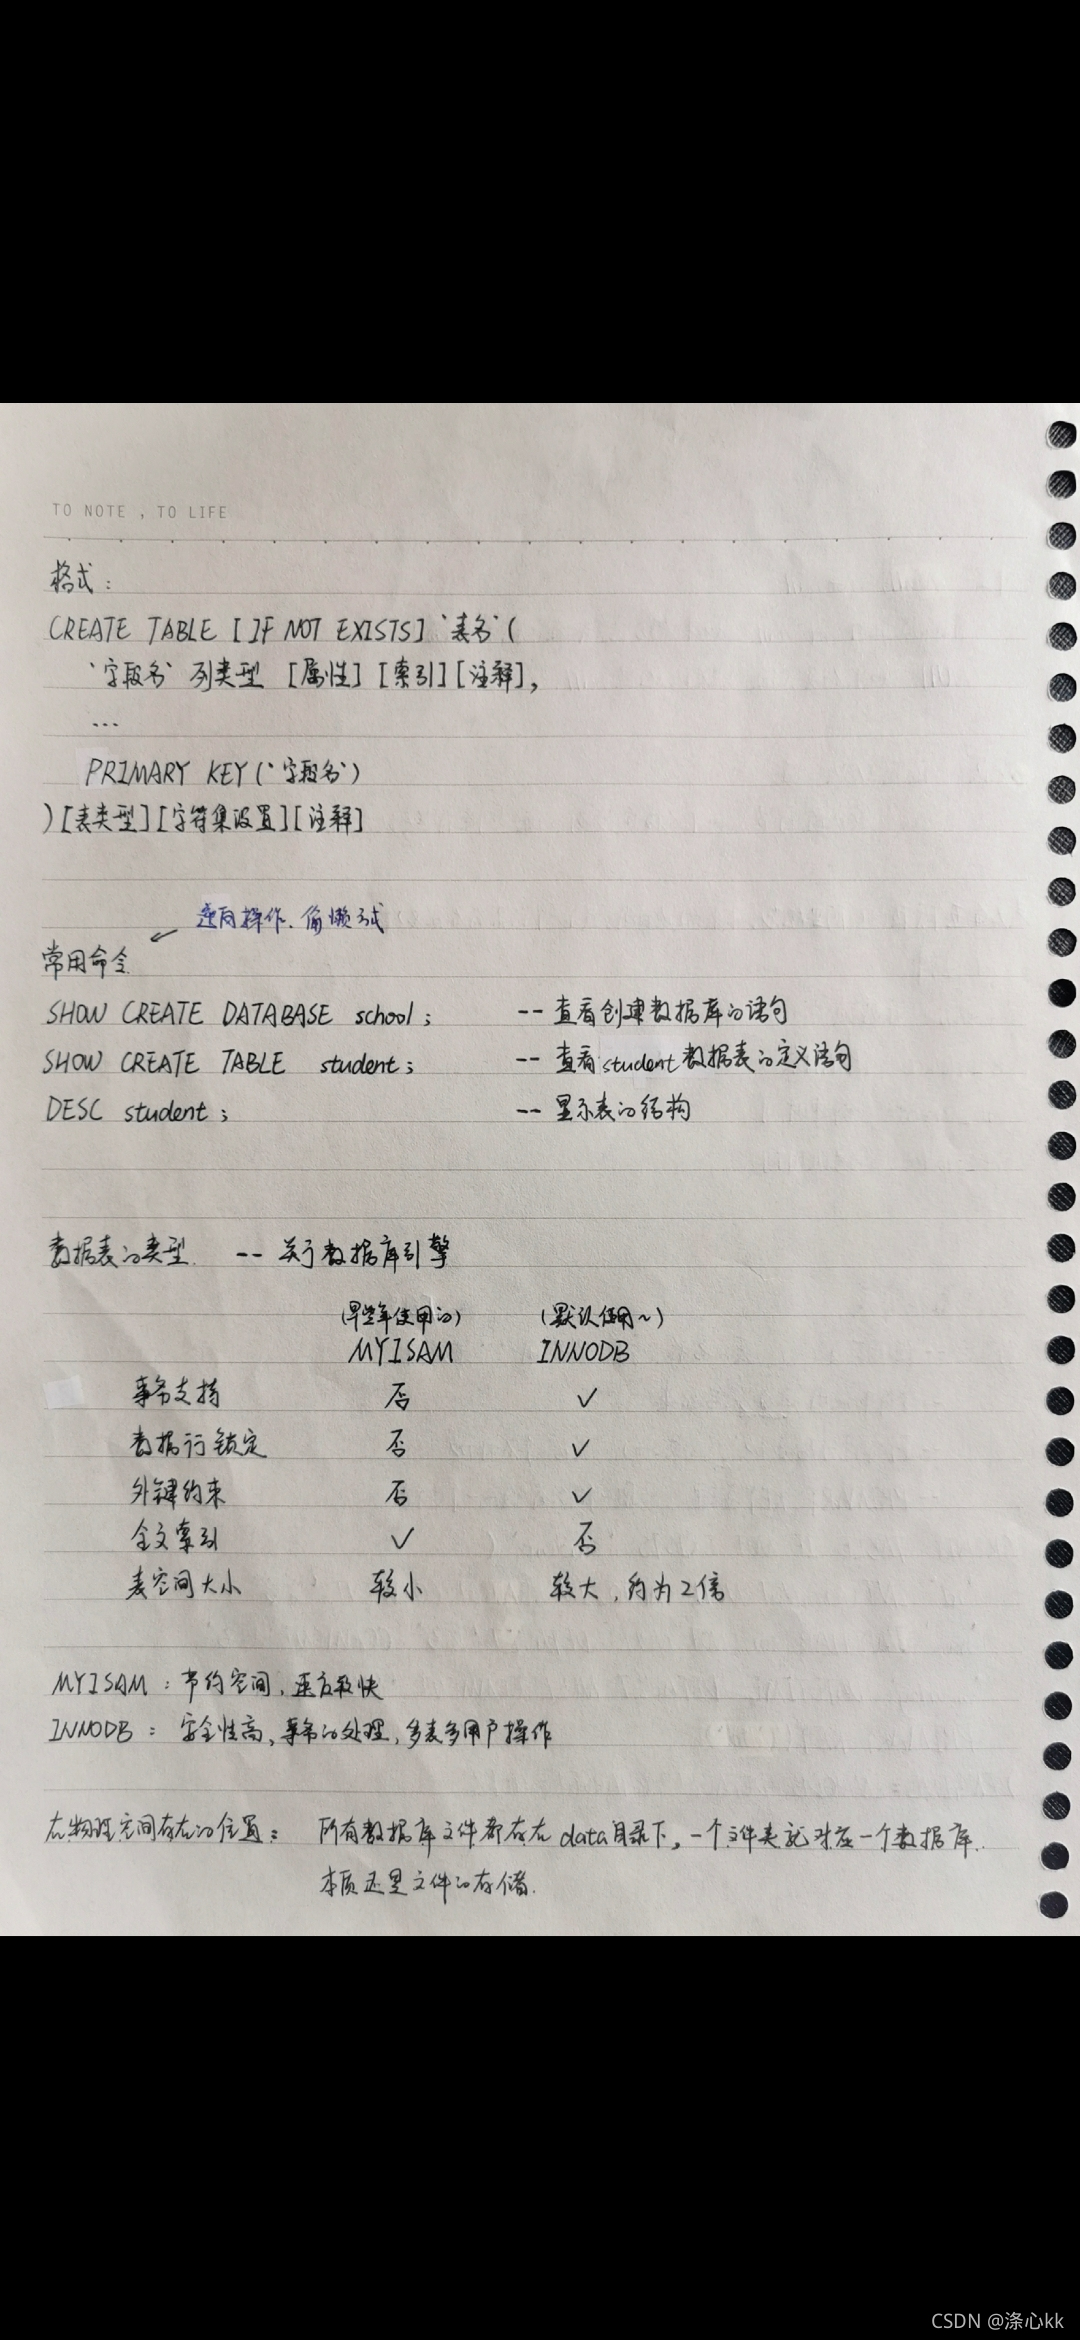 TO NOTE , TO LIFE
格式：
CREATE TABLE [IF NOT EXISTS] `表名` (
`字段名` 列类型 [属性] [索引] [注释],
...
PRIMARY KEY (`字段名`)
) [表类型] [字符集设置] [注释]
逆向操作、偷懒方式
常用命令
SHOW CREATE DATABASE school; -- 查看创建数据库的语句
SHOW CREATE TABLE student; -- 查看student数据表的定义语句
DESC student; -- 显示表的结构
数据表的类型 -- 关于数据库引擎
(早些年使用的) (默认使用~)
MYISAM INNODB
事务支持 否 ✓
数据行锁定 否 ✓
外键约束 否 ✓
全文索引 ✓ 否
表空间大小 较小 较大，约为2倍
MYISAM : 节约空间，速度较快
INNODB : 安全性高，事务的处理，多表多用户操作
在物理空间存在的位置： 所有数据库文件都存在data目录下，一个文件夹就对应一个数据库.
本质还是文件的存储.
CSDN @涤心kk